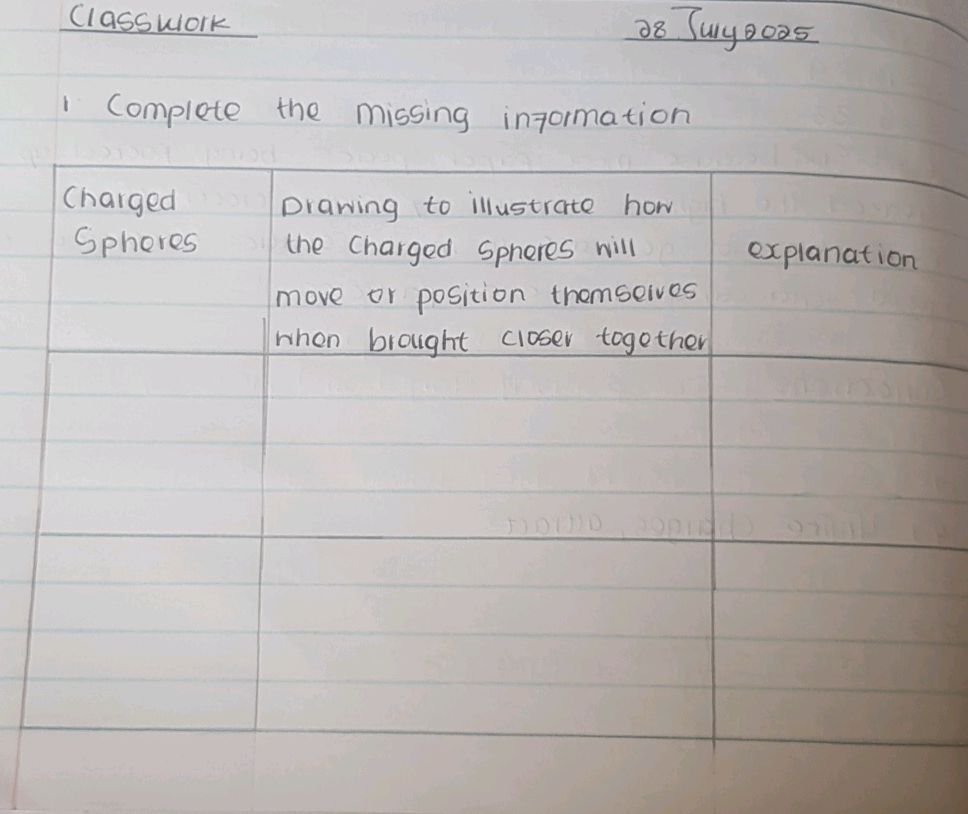 Classwork
28 July 2025
1 Complete the missing information
Charged
Spheres
Drawing to illustrate how
the Charged Spheres will
move or position themselves
when brought closer together
explanation